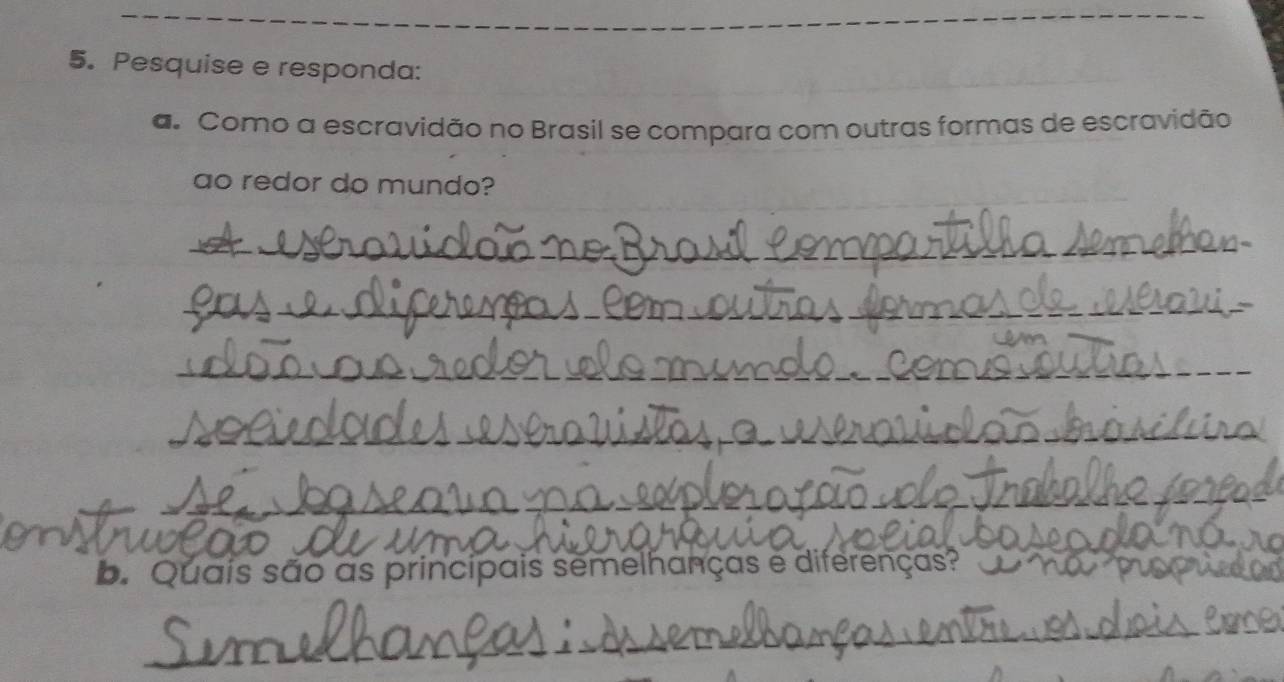 5. Pesquise e responda:
a. Como a escravidão no Brasil se compara com outras formas de escravidão
ao redor do mundo?
A escravidão no Brasil compartilha semelhan-
ças e diferenças com outras formas de escravi-
dão ao redor do mundo. como em outras
sociedades escravistas, a escravidão brasileira
se baseava na exploração do trabalho forçado
construção de uma hierarquia social baseada na
e na propriedad
b. Quais são as principais semelhanças e diferenças?
Semelhanças: As semelhanças entre os dois